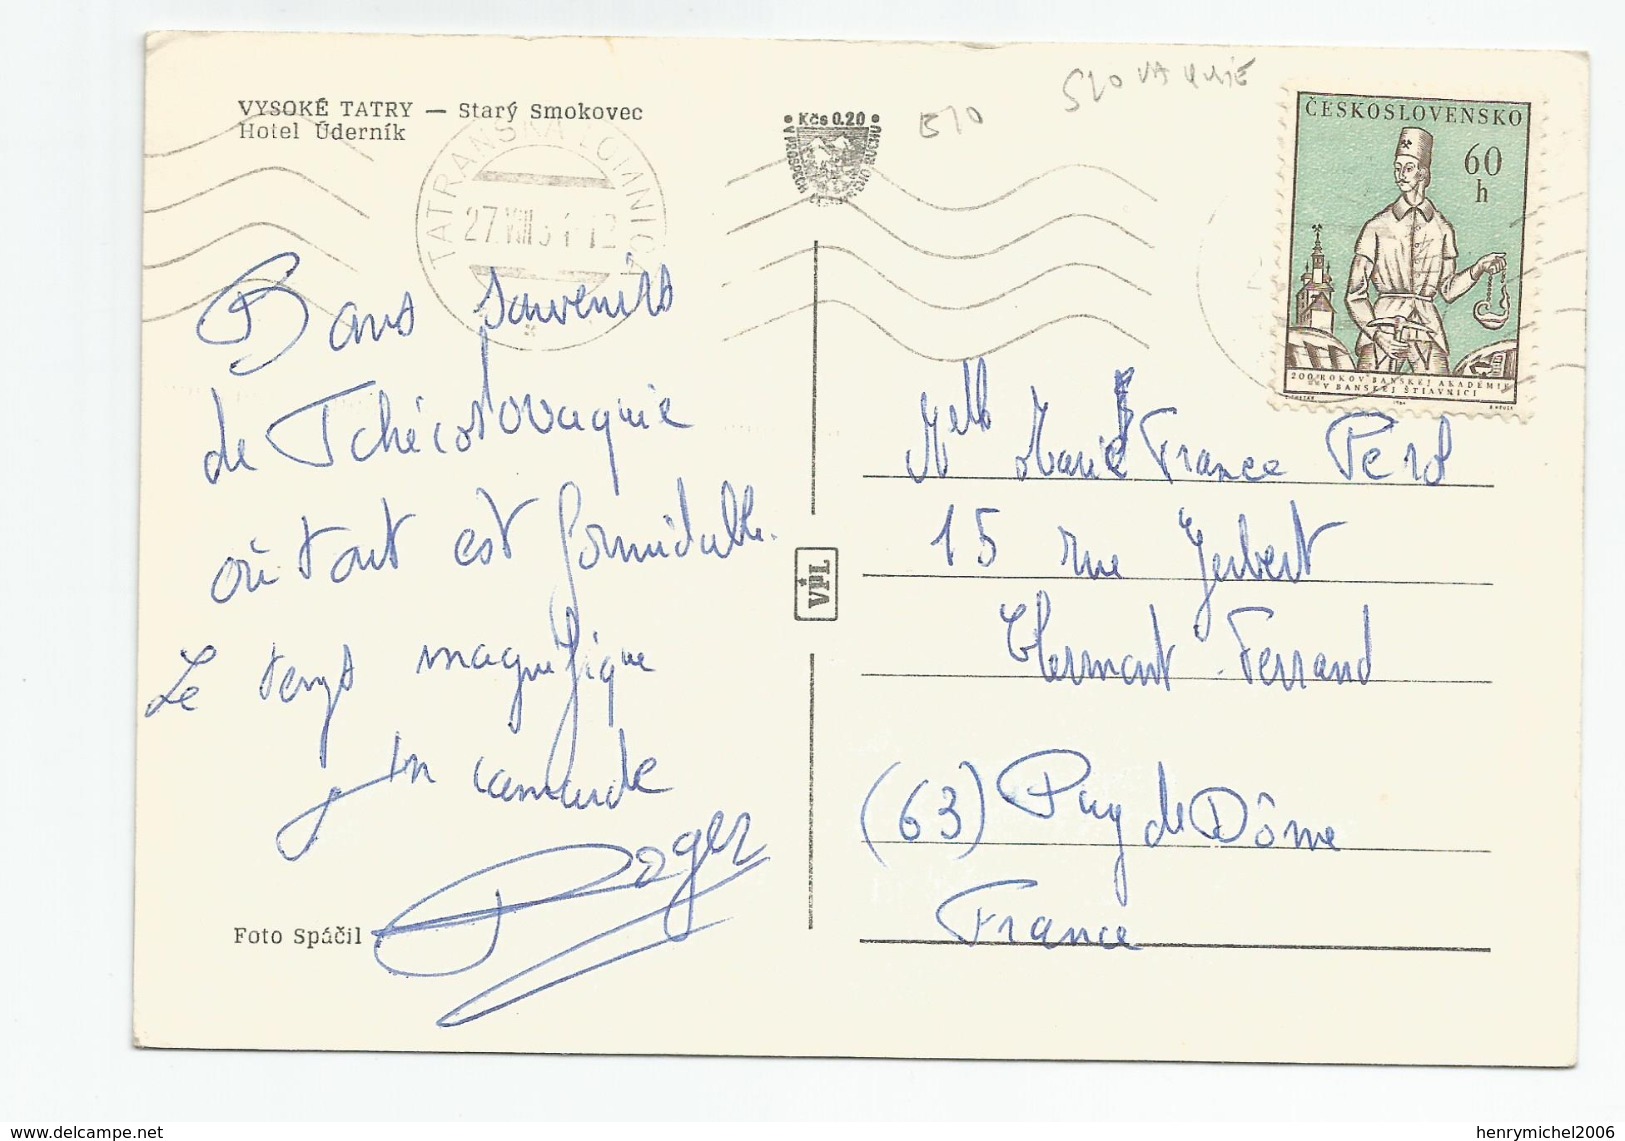 SLOVAQUIE
VYSOKÉ TATRY — Starý Smokovec
Hotel Úderník
Kčs 0.20
TATRANSKÁ LOMNICA
27.VIII
ČESKOSLOVENSKO
60
h
200 ROKOV BANSKEJ AKADÉMIE
V BANSKEJ ŠTIAVNICI
1964
Bons souvenirs
de Tchécoslovaquie
où tout est formidable.
Le temps magnifique
Un camarade
Roger
Foto Spáčil
VPL
Melle Marie France
15 rue Jubert
Clermont-Ferrand
(63) Puy de Dôme
France
www.delcampe.net
henrymichel2006